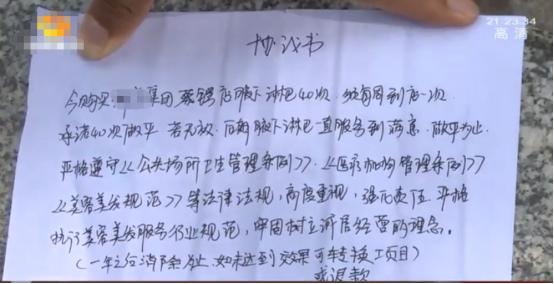 21:23:34
高清
协议书
今购买 集团 店腋下淋巴40次 每周到店一次
承诺40次做平 若无效 后期腋下淋巴一直服务到满意 做平为止
严格遵守《公共场所卫生管理条例》《医疗机构管理条例》
《美容美发规范》等法律法规,高度重视,强化责任 严格
执行美容美发服务行业规范,牢固树立诚信经营的理念。
(一年之后消除为止 如未达到效果可转换项目)
或退款